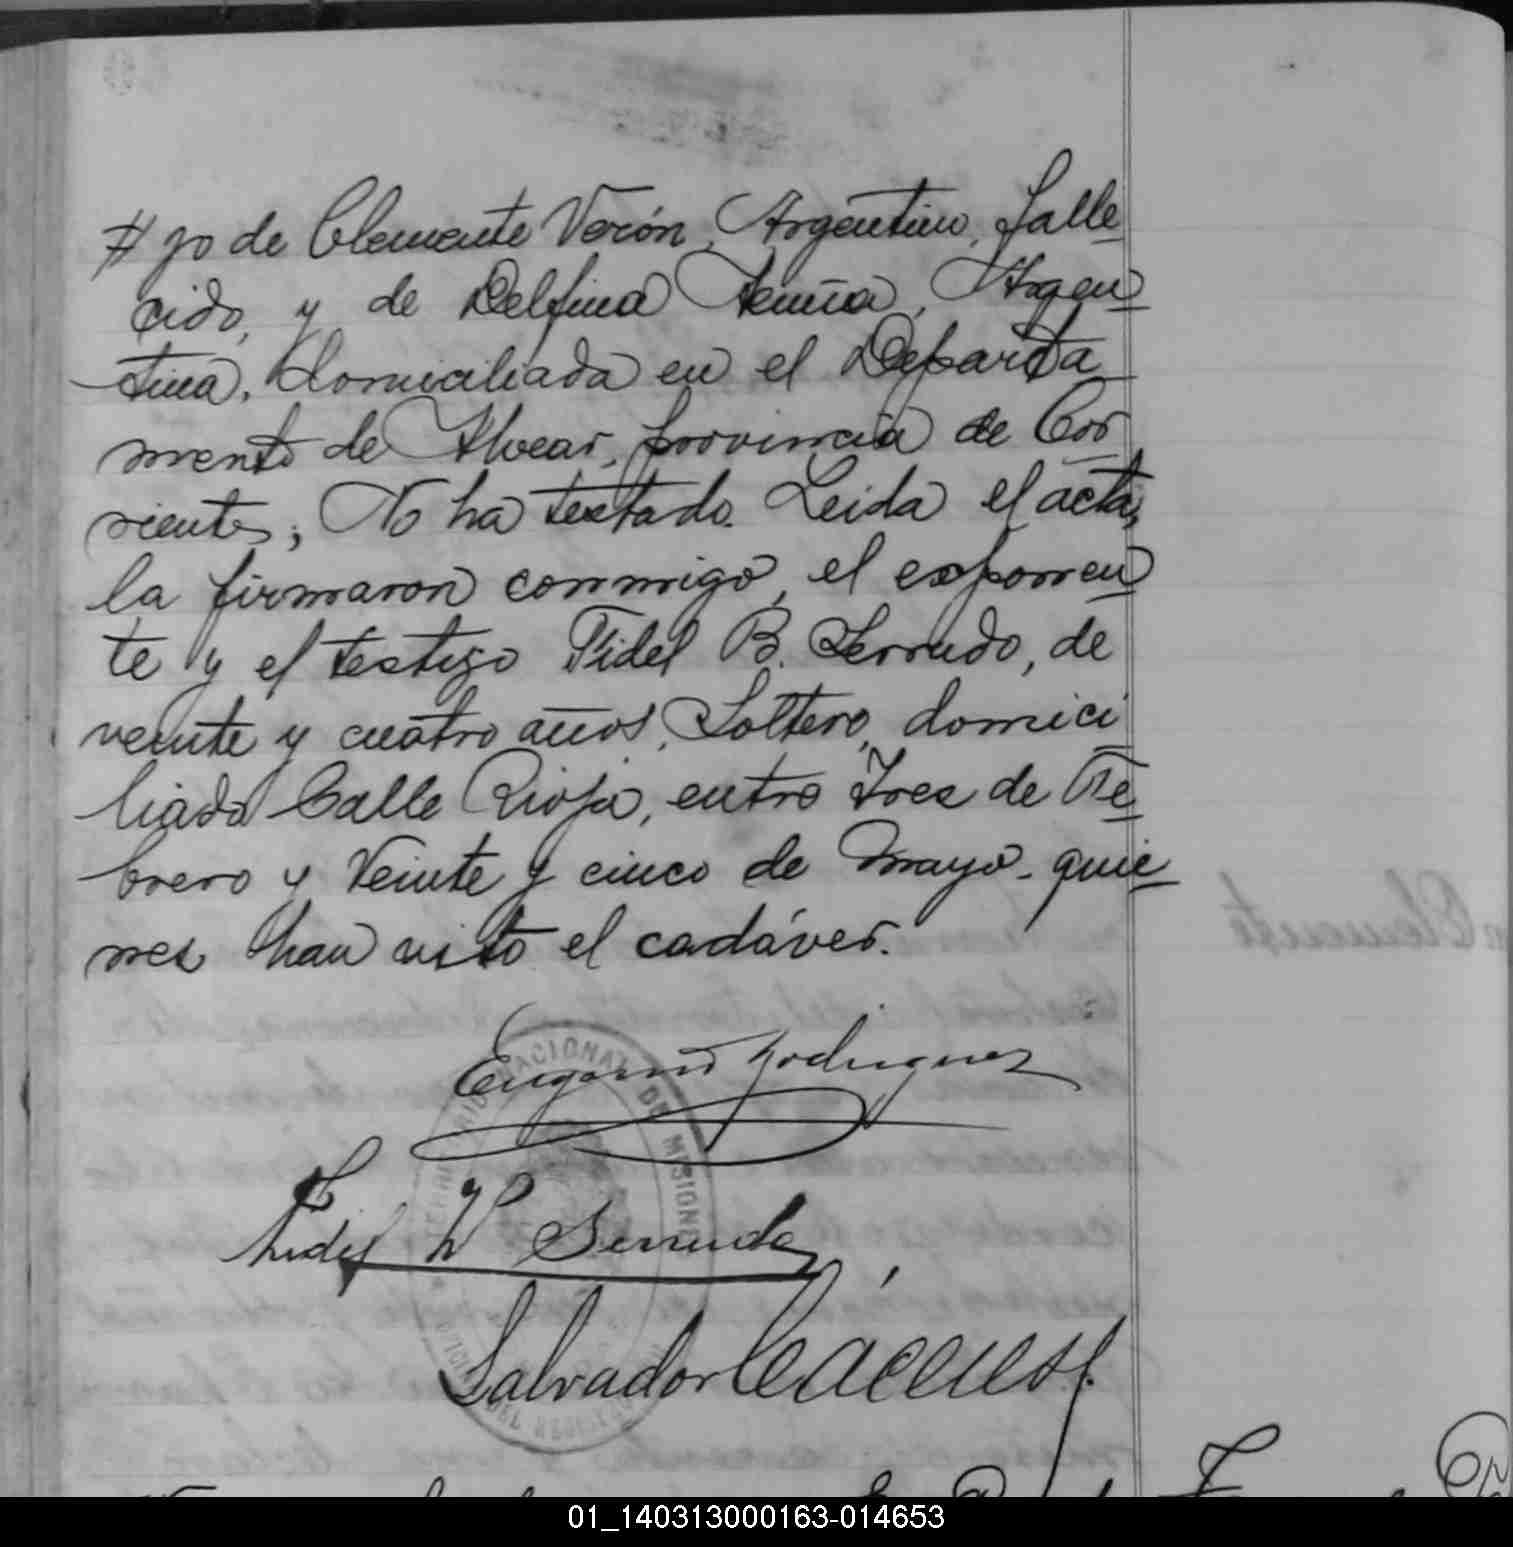 # jo de Clemente Verón, Argentino, falle
cido, y de Delfina Acuña, Argen
tina, domiciliada en el Departa
mento de Alvear, provincia de Cor
rientes; No ha testado. Leida el acta,
la firmaron conmigo, el exponen
te y el testigo Fidel B. Serrudo, de
veinte y cuatro años, Soltero, domici
liado Calle Rioja, entre Tres de Fe
brero y Veinte y cinco de Mayo - quie
nes han visto el cadáver.
Eugenio Rodriguez
NACIONAL DE MISIONES
Fidel Serrudo
Salvador Cáceres
01_140313000163-014653